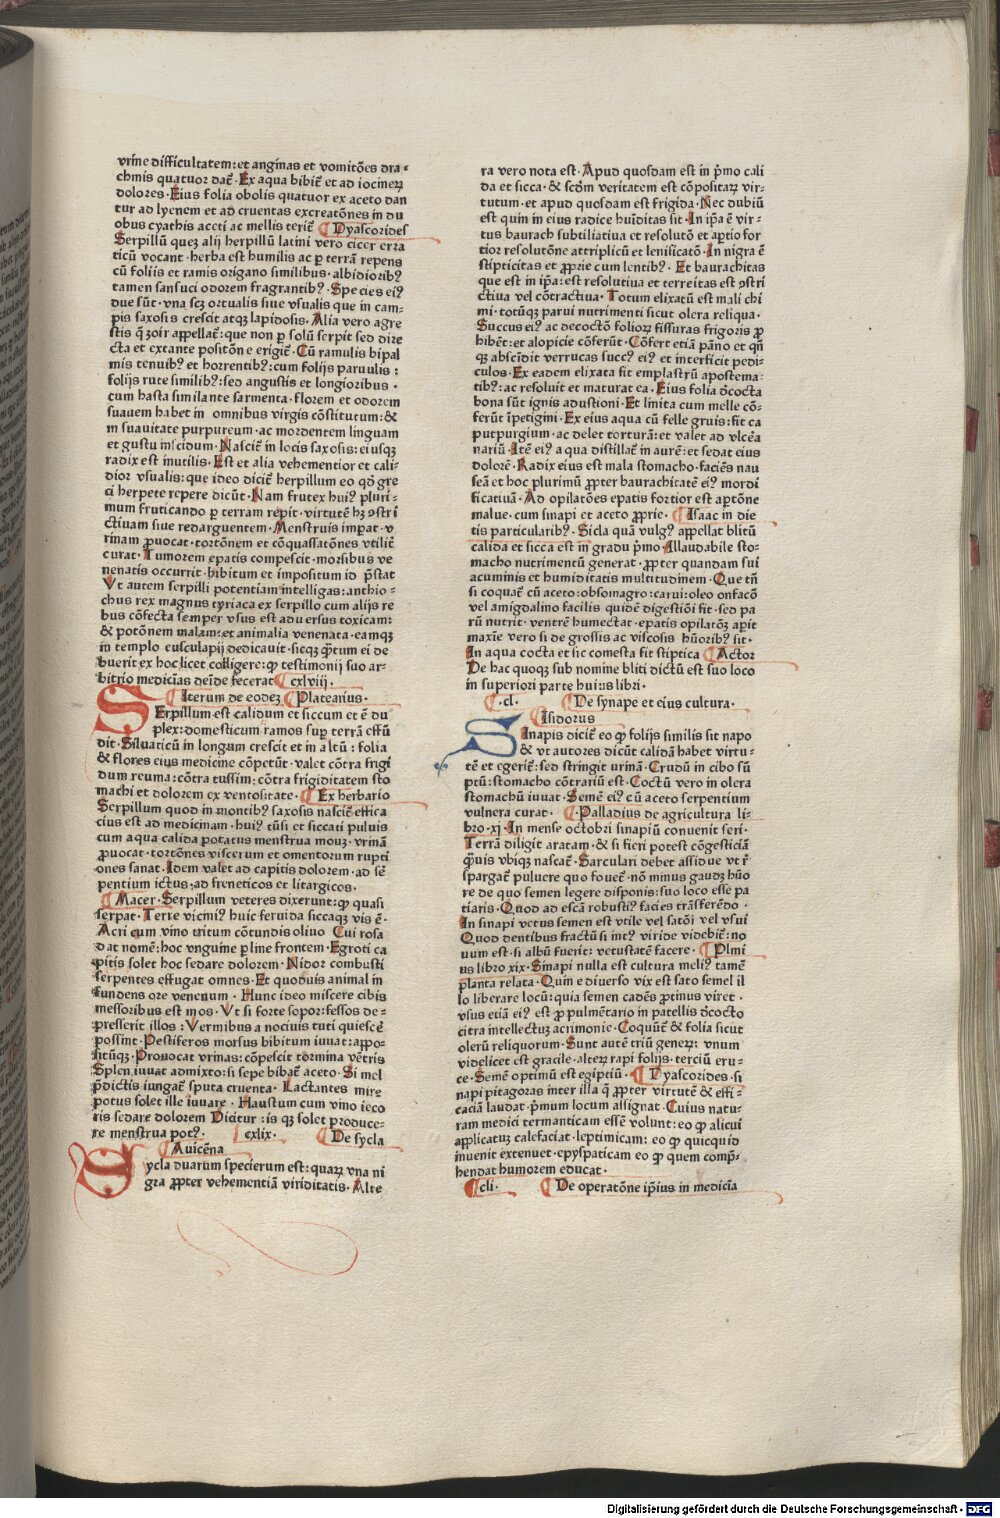 vrine difficultatem: et anginas et vomitões dra-
chmis quatuor dat̃ · Ex aqua bibit̃ et ad iocinerꝝ
dolores · Eius folia obolis quatuor ex aceto dan
tur ad lyenem et ad cruentas excreatões in du
obus cyathis aceti ac mellis terit̃ ¶ Dyascorides
Serpillũ queꝫ alij herpillũ latini vero cicer erra
ticũ vocant · herba est humilis ac ꝑ terrã repens
cũ foliis et ramis origano similibus · albidioribꝰ
tamen sansuci odorem fragrantibꝰ · Species eiꝰ
due sũt · vna scꝫ ortualis siue vsualis que in cam-
pis saxosis crescit atqꝫ lapidosis · Alia vero agre
stis q̃ ꝫoir appellat̃: que non ꝑ solũ serpit sed dire
cta et extante positõne erigit̃ · Cũ ramulis bipal
mis tenuibꝰ et horrentibꝰ: cum folijs paruulis:
folijs rute similibꝰ: sed angustis et longioribus ·
cum hasta similante sarmenta · florem et odorem
suauem habet in omnibus virgis cõstitutum: &
in suauitate purpureum · ac mordentem linguam
et gustu insꝉcidum · Nascit̃ in locis saxosis: eiusqꝫ
radix est inutilis · Est et alia vehementior et cali-
dior vsualis: que ideo dicit̃ herpillum eo qđ gre
ci herpete repere dicũt · Nam frutex huiꝰ pluri-
mum fruticando ꝑ terram repit · virtutẽ hꝫ ꝯstri
ctiuam siue redarguentem · Menstruis imꝑat · v
rinam ꝓuocat · tortõnem et cõquassatões vtilit̃
curat · Tumorem epatis compescit · morsibus ve
nenatis occurrit · bibitum et impositum id p̃stat
Vt autem serpilli potentiam intelligas: anthio-
chus rex magnus tyriaca ex serpillo cum alijs re
bus cõfecta semper vsus est aduersus toxicam:
& potõnem malam: et animalia venenata · eamqꝫ
in templo esculapij dedicauit · sitqꝫ q̃tum ei de
buerit ex hoc licet colligere: ꝙ testimonij suo ar-
bitrio medicinas deĩde fecerat ¶ cxlviij ·
¶ Iterum de eodeꝫ ¶ Platearius ·
SErpillum est calidum et siccum et ẽ du
plex: domesticum ramos suꝑ terrã effũ
dit · Siluaticũ in longum crescit et in altũ: folia
& flores eius medicine cõpetũt · valet cõtra frigi
dum reuma: cõtra tussim: cõtra frigiditatem sto
machi et dolorem ex ventositate · ¶ Ex herbario
Serpillum quod in montibꝰ saxosis nascit̃ effica
cius est ad medicinam · huiꝰ tũsi et siccati puluis
cum aqua calida potatus menstrua mouꝫ · vrinã
ꝓuocat · tortões viscerum et omentorum rupti
ones sanat · Idem valet ad capitis dolorem · ad sẽ
pentium ictus: ad freneticos et litargicos ·
¶ Macer · Serpillum veteres dixerunt: ꝙ quasi
serpat · Terre vicinꝰ huic feruida siccaqꝫ vis ẽ ·
Acri cum vino tritum cõtundis oliuo Cui rosa
dat nomẽ: hoc vnguine ꝑline frontem · Egroti ca
pitis solet hoc sedare dolorem · Nidor combusti
serpentes effugat omnes · Et quoduis animal in
fundens ore venenum · Hunc ideo miscere cibis
messoribus est mos · Vt si forte sopor: fessos de-
presserit illos: Vermibus a nociuis tuti quiescẽ
possint · Pestiferos morsus bibitum iuuat: appo-
situqꝫ · Prouocat vrinas: cõpescit tormina vẽtris
Splen iuuat admixto: si sepe bibat̃ aceto · Si mel
p̃dictis iungat̃ sputa cruenta · Lactantes mire
potus solet ille iuuare · Haustum cum vino ieco
ris sedare dolorem Dicitur: is qꝫ solet produce-
re menstrua potꝰ · cxlix · ¶ De sycla
¶ Auicẽna
Cycla duarum specierum est: quaꝝ vna ni
gra ꝓpter vehementiã viriditatis · Alte
ra vero nota est · Apud quosdam est in p̃mo cali
da et sicca · & scđm veritatem est cõpositaꝝ vir-
tutum · et apud quosdam est frigida · Nec dubiũ
est quin in eius radice hũiditas sit · In ip̃a ẽ vir-
tus baurach subtiliatiua et resolutõ et aꝑtio for
tior resolutõne attriplicũ et lenificatõ · In nigra ẽ
stipticitas et ꝓprie cum lentibꝰ · Et baurachitas
que est in ip̃a: est resolutiua et terreitas est ꝯstri
ctiua vel cõtractiua · Totum elixatũ est mali chi
mi · totũqꝫ parui nutrimenti sicut olera reliqua ·
Succus eiꝰ ac decoctõ folioꝝ fissuras frigoris ꝓ
hibẽt: et alopicie cõferũt · Cõfert etiã pãno et qñ
qꝫ abscĩdit verrucas succꝰ eiꝰ et interficit pedi-
culos · Ex eadem elixata fit emplastrũ apostema-
tibꝰ: ac resoluit et maturat ea · Eius folia đcocta
bona sũt ignis adustioni · Et linita cum melle cõ-
ferũt ĩpetigini · Ex eius aqua cũ felle gruis: fit ca
putpurgium · ac delet torturã: et valet ad vlcẽa
nariũ · Itẽ eiꝰ aqua distillat̃ in aurẽ: et sedat eius
dolorẽ · Radix eius est mala stomacho · faciẽs nau
seã et hoc plurimũ ꝓpter baurachitatẽ eiꝰ mordi
ficatiuã · Ad opilatões epatis fortior est aꝑtõne
malue · cum sinapi et aceto ꝓprie · ¶ Isaac in die
tis particularibꝰ · Sicla quã vulgꝰ appellat blitũ
calida et sicca est in gradu p̃mo · Allaudabile sto-
macho nutrimentũ generat · ꝓpter quandam sui
acuminis et humiditatis multitudinem · Que tñ
si coquat̃ cũ aceto: obsomagro: carui: oleo onfacõ
vel amigdalino facilis quidẽ digestiõi fit · sed pa
rũ nutrit · ventrẽ humectat · epatis opilatõꝫ aꝑit
maxĩe vero si de grossis ac viscosis hũoribꝰ sit ·
In aqua cocta et sic comesta fit stiptica ¶ Actor
De hac quoqꝫ sub nomine bliti dictũ est suo loco
in superiori parte huius libri ·
¶ · cl · ¶ De synape et eius cultura ·
¶ Isidorus
SInapis dicit̃ eo ꝙ folijs similis sit napo
& vt autores dicũt calidã habet virtu-
tẽ et egerit̃: sed stringit urinã · Crudũ in cibo sũ
ptũ: stomacho cõtrariũ est · Coctũ vero in olera
stomachũ iuuat · Semẽ eiꝰ cũ aceto serpentium
vulnera curat · ¶ Palladius de agricultura li-
bro · xj · In mense octobri sinapiũ conuenit seri ·
Terrã diligit aratam · & si fieri potest cõgesticiã
q̃uis vbiqꝫ nascat̃ · Sarculari debet assidue vt r̃
spargat̃ puluere quo fouet̃ · nõ minus gaudꝫ hũo
re de quo semen legere disponis: suo loco esse pa
tiaris · Quod ad escã robustiꝰ facies trãsferẽdo ·
In sinapi vetus semen est vtile vel satõi vel vsui
Quod dentibus fractũ si intꝰ viride videbit̃: no
uum est · si albũ fuerit: vetustatẽ facere · ¶ Plini
us libro xix · Sinapi nulla est cultura meliꝰ tamẽ
planta relata · Quin e diuerso vix est sato semel il
lo liberare locũ: quia semen cadẽs ꝓtinus viret ·
vsus etiã eiꝰ est ꝓ pulmẽtario in patellis đcocto
citra intellectuꝫ acrimonie · Coquũt̃ & folia sicut
olerũ reliquorum · Sunt autẽ triũ generꝝ: vnum
videlicet est gracile · alterꝝ rapi folijs · terciũ eru-
ce · Semẽ optimũ est egiptiũ · ¶ Dyascorides · si
napi pitagoras inter illa q̃ ꝓpter virtutẽ & effi-
caciã laudat · p̃mum locum assignat · Cuius natu-
ram medici termanticam essẽ volunt: eo ꝙ alicui
applicatuꝫ calefaciat · leptimicam: eo ꝙ quicquid
inuenit extenuet · epyspaticam eo ꝙ quem comp̃-
hendat humorem educat ·
¶ cli · ¶ De operatõne ip̃ius in medicĩa
Digitalisierung gefördert durch die Deutsche Forschungsgemeinschaft · DFG